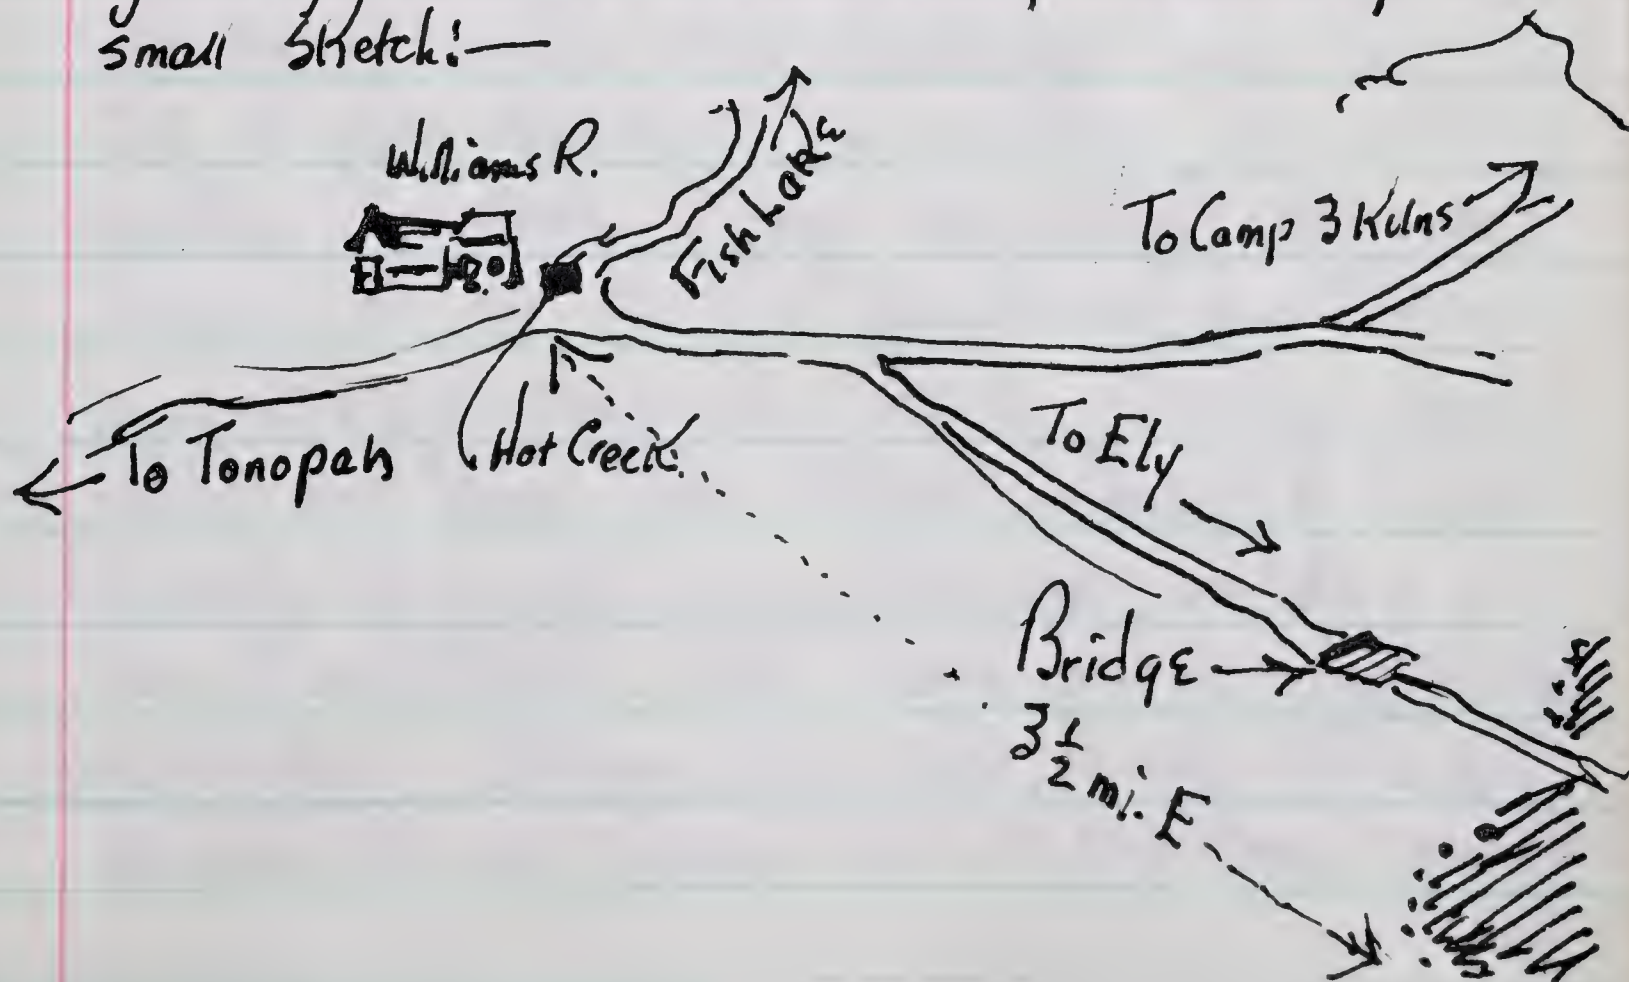 small Sketch:—
Williams R.
Fish Lake
To Camp 3 Kilns
To Tonopah
Hot Creek
To Ely
Bridge
3 1/2 mi. E